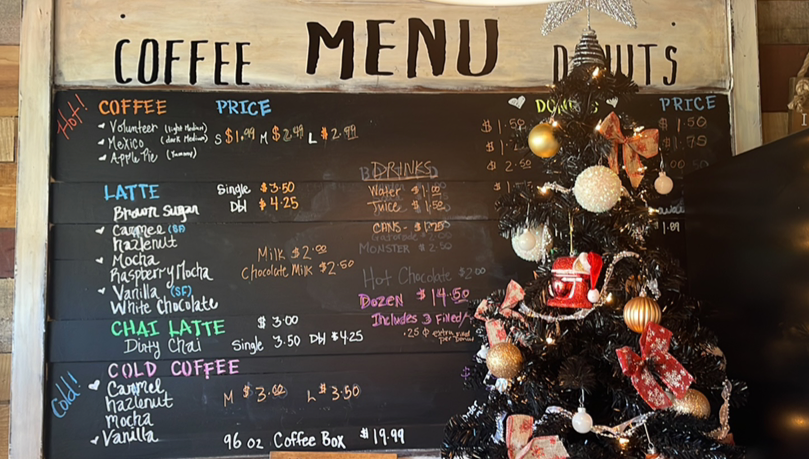 COFFEE MENU DONUTS
Hot! COFFEE PRICE
Volunteer (light Medium)
Mexico (dark Medium)
Apple Pie (Yummy)
S $1.99 M $2.49 L $2.99
LATTE Single $3.50
Brown Sugar Dbl $4.25
Carmel (SF)
hazlenut
Mocha
Raspberry Mocha
Vanilla (SF)
White Chocolate
Milk $2.00
Chocolate Milk $2.50
CHAI LATTE $3.00
Dirty Chai Single 3.50 Dbl $4.25
Cold! COLD COFFEE
Carmel
hazlenut
Mocha
Vanilla
M $3.00 L $3.50
96 oz Coffee Box $19.99
DRINKS
Water $1.00
Juice $1.50
CANS - $1.50
MONSTER $2.50
Hot Chocolate $2.00
Dozen $14.50
Includes 3 Filled/
.25 ¢ extra
PRICE
$1.50
$1.50
$1.75
$2.50
$1.89